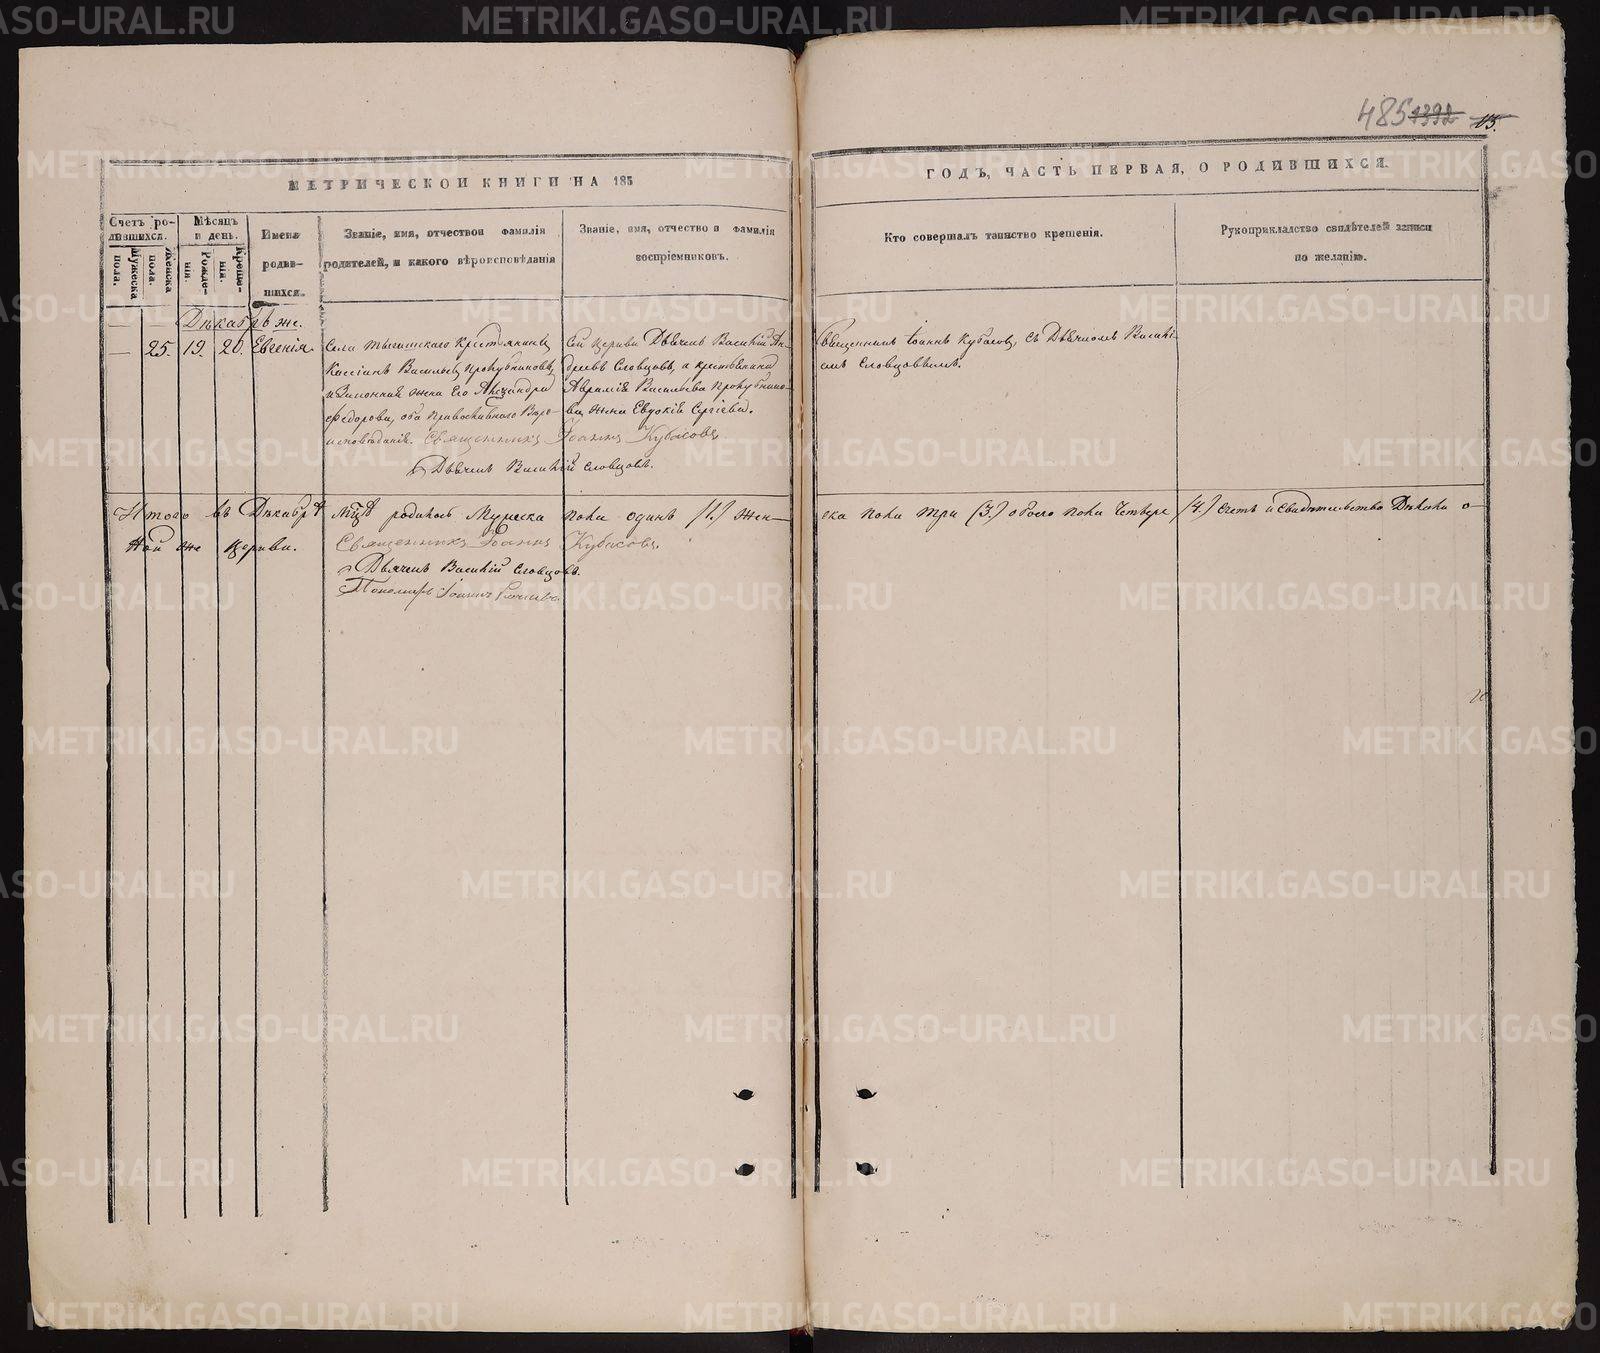 485 1392 15.
МЕТРИЧЕСКОЙ КНИГИ НА 185
ГОДЪ, ЧАСТЬ ПЕРВАЯ, О РОДИВШИХСЯ.
Счетъ ро-
дившихся.
Мужеска
пола.
Женска
пола.
Мѣсяцъ
и день.
Рожде-
нія.
Креще-
нія.
Имена
родив-
шихся.
Званіе, имя, отчество и фамилія
родителей, и какого вѣроисповѣданія
Званіе, имя, отчество и фамилія
воспріемниковъ.
Кто совершалъ таинство крещенія.
Рукоприкладство свидѣтелей записи
по желанію.
Декабрь же.
— 25. 19. 20. Евгенія.
Села крестьянинъ
Кассіанъ Васильевъ
и законная жена Его Александра
Федорова, оба Православнаго Вѣро-
исповѣданія. Священникъ Іоаннъ Кубасовъ
Дьячекъ Василій Словцовъ.
Сей церкви Дьячекъ Василій Ан-
древъ Словцовъ, и крестьянина
Аврамія Васильева
жена Евдокія Сергіева.
Священникъ Іоаннъ Кубасовъ, съ Дьячкомъ Василі-
емъ Словцовымъ.
Итого въ Декабрѣ мцѣ родилось Мужеска пола одинъ (1.) Жен-
ска пола три (3.) обоего пола Четверо (4.) Счетъ и Свидѣтельство
той же церкви.
Священникъ Іоаннъ Кубасовъ.
Дьячекъ Василій Словцовъ.
Пономарь Іоаннъ
METRIKI.GASO-URAL.RU